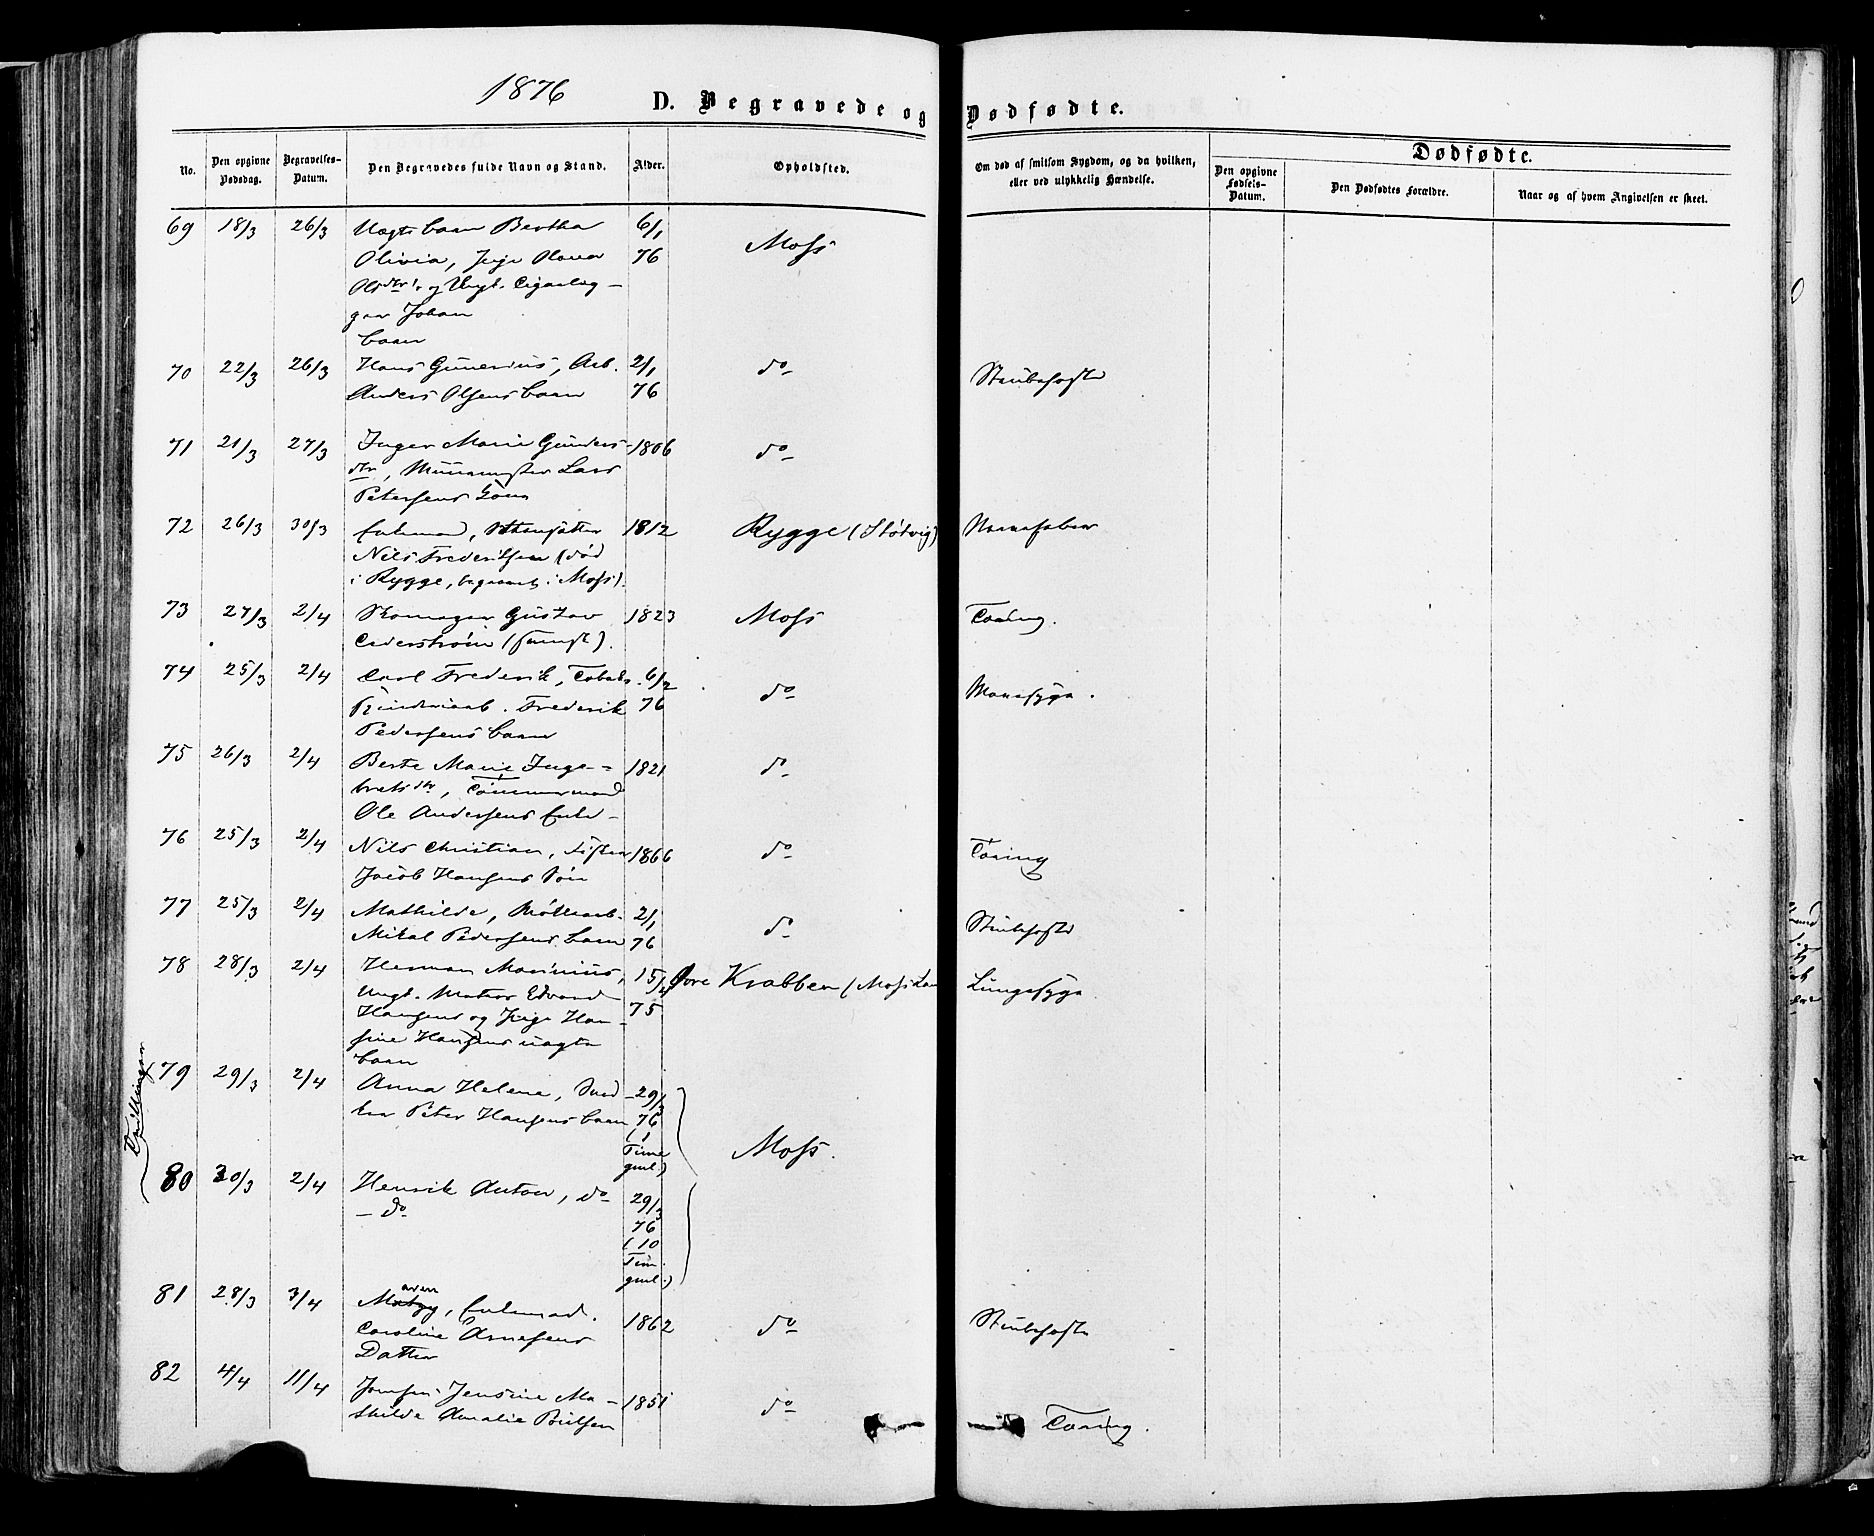 1876
D. Begravede og Dødfødte.
No.
Den opgivne Dødsdag.
Begravelses-Datum.
Den Begravedes fulde Navn og Stand.
Alder.
Opholdsted.
Om død af smitsom Sygdom, og da hvilken, eller ved ulykkelig Hændelse.
Dødfødte.
Den opgivne Fødsels-Datum.
Den Dødfødtes Forældre.
Naar og af hvem Angivelsen er skeet.
69 18/3 26/3 Uægte barn Bertha 6/1
Olivia, Pige 76 Moss
Olsdtr og Ungk. Cigarlag-
ger Johan
barn
70 22/3 26/3 Hans Gunerius, Arb. 2/1 do Strubehoste
Anders Olsens barn 76
71 21/3 27/3 Inger Marie Gunders- 1806 do
dtr, Muurmester Lars
Petersens
72 26/3 30/3 Enkemand, 1812 Rygge (Støtvig) Nervefeber
Nils Frederiksen (død
i Rygge, begravet i Moss).
73 27/3 2/4 Skomager Gustav 1823 Moss Tæring.
Cederstrøm (svensk).
74 25/3 2/4 Carl Frederik, Tobaks- 6/2 do Mavesyge.
Frederik 76
Pedersens barn
75 26/3 2/4 Berte Marie Inge- 1821 do
bretsdtr, Tømmermand
Ole Andersens Enke-
76 25/3 2/4 Nils Christian, Fisker 1866 do Tæring
Jacob Hansens Søn
77 25/3 2/4 Mathilde, Møllearb. 2/1 do Strubehoste
Mikal Pedersens barn 76
78 28/3 2/4 Herman Marinius, 15/4 Øvre Krabben (Moss Lan Lungesyge
Ungk. Matros Edvard 75
Hansens og Pige Han-
sine Hansens uægte
barn
Tvillinger
79 29/3 2/4 Anna Helene, Sned- 29/3
ker Peter Hansens barn 76
(1
Time
gml.)
Moss.
80 30/3 2/4 Henrik Anton, do 29/3
- do 76
(10
Tim.
gml.)
81 28/3 3/4 Enkemad. 1862 do Strubehoste
Caroline Arnesens
Datter
82 4/4 11/4 Jomfru Jensine Ma- 1851 do Tæring.
thilde Amalie